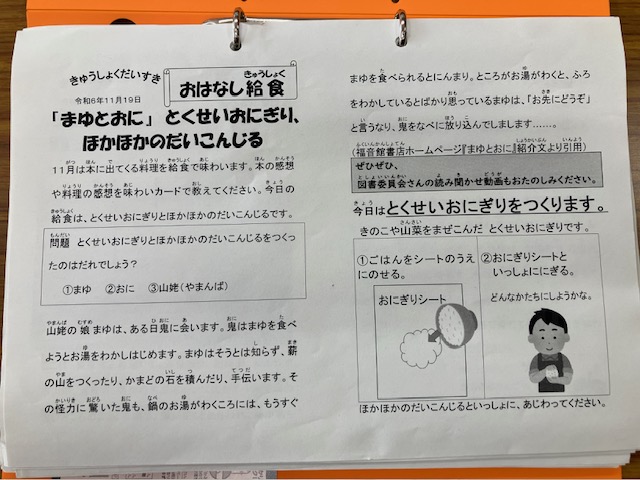 きゅうしょくだいすき
おはなし給食
令和6年11月19日
「まゆとおに」 とくせいおにぎり、
ほかほかのだいこんじる
11月は本に出てくる料理を給食で味わいます。本の感想
や料理の感想を味わいカードで教えてください。今日の
給食は、とくせいおにぎりとほかほかのだいこんじるです。
問題 とくせいおにぎりとほかほかのだいこんじるをつくっ
たのはだれでしょう？
①まゆ ②おに ③山姥（やまんば）
山姥の娘まゆは、ある日鬼に会います。鬼はまゆを食べ
ようとお湯をわかしはじめます。まゆはそうとは知らず、薪
の山をつくったり、かまどの石を積んだり、手伝います。そ
の怪力に驚いた鬼も、鍋のお湯がわくころには、もうすぐ
まゆを食べられるとにんまり。ところがお湯がわくと、ふろ
をわかしているとばかり思っているまゆは、「お先にどうぞ」
と言うなり、鬼をなべに放り込んでしまします……。
（福音館書店ホームページ『まゆとおに』紹介文より引用）
ぜひぜひ、
図書委員会さんの読み聞かせ動画もおたのしみください。
今日はとくせいおにぎりをつくります。
きのこや山菜をまぜこんだ とくせいおにぎりです。
①ごはんをシートのうえ
にのせる。
おにぎりシート
②おにぎりシートと
いっしょににぎる。
どんなかたちにしようかな。
ほかほかのだいこんじるといっしょに、あじわってください。